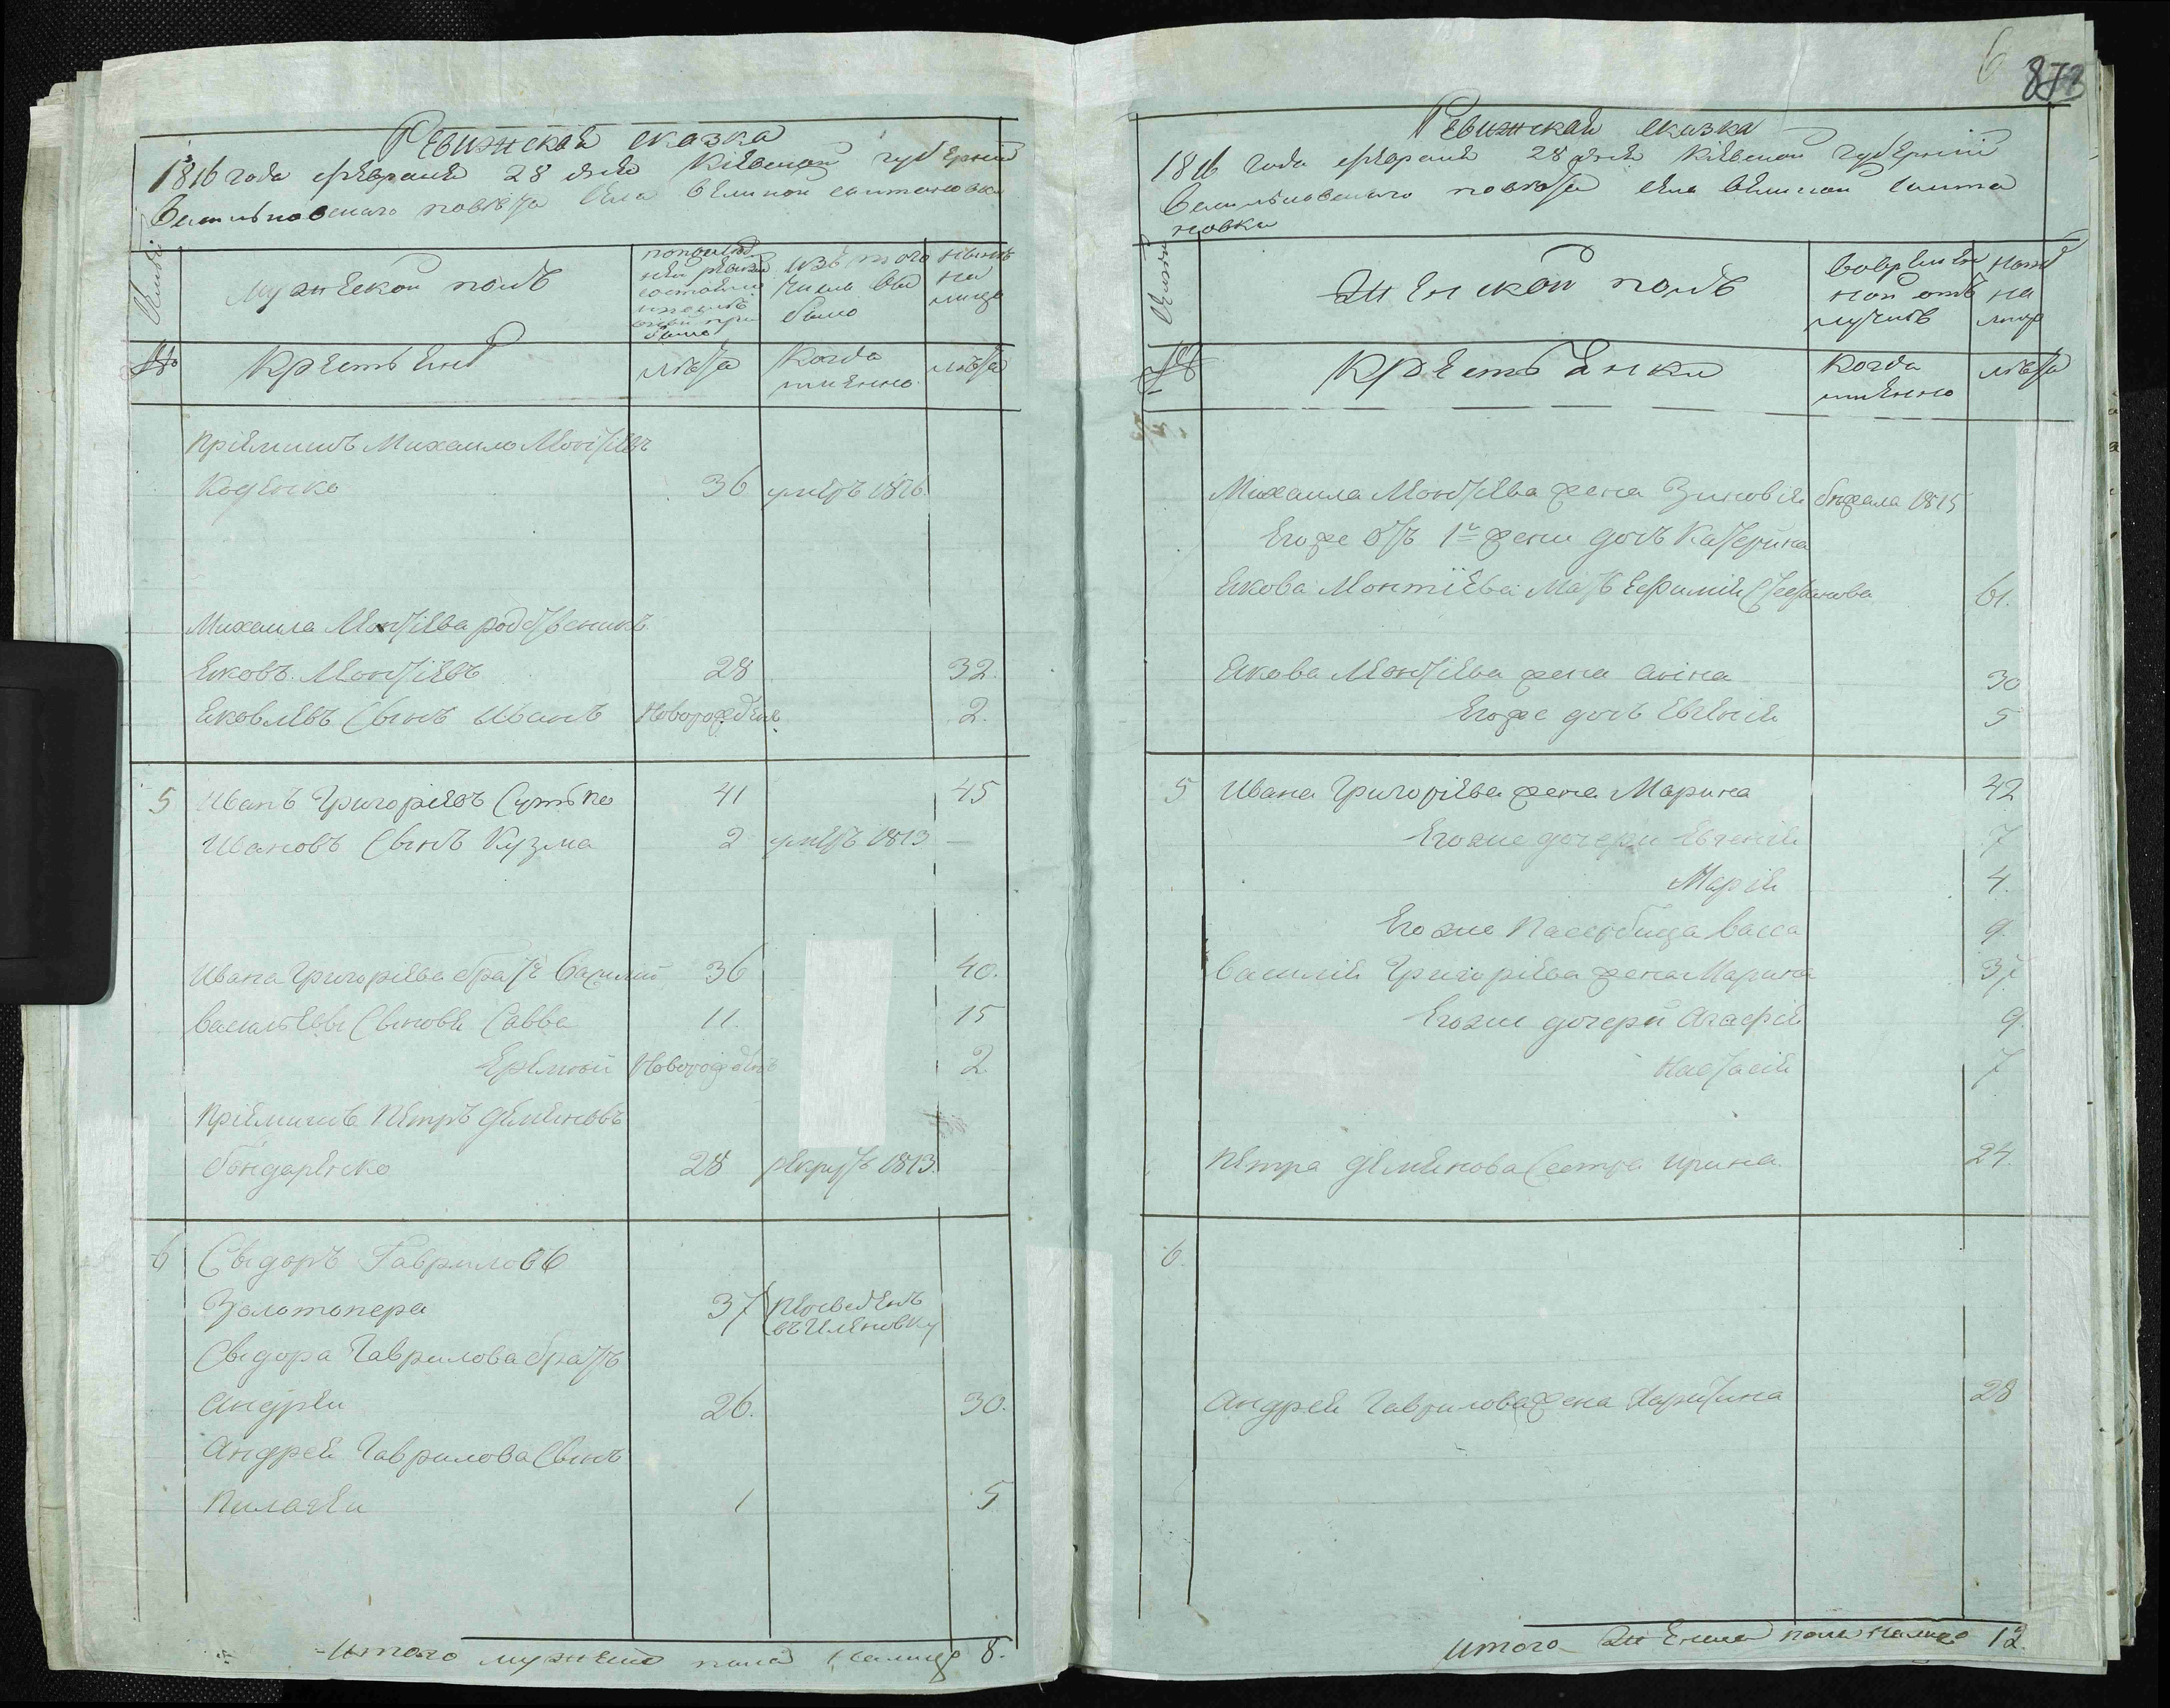 Ревижская сказка
1816 года февраля 28 дня Кіевской губерніи
Васильковскаго повѣта села великой салтановки
Мужеской полъ
изъ того числа вы было
нынѣ на лицо
№
Крестьяне
лѣта
Когда имянно
лѣта
Пріемышъ Михаило Монтіевъ
Коденко 36 умеръ 1816
Михаила Монтіева родственникъ
Яковъ Монтіевъ 28 32.
Яковлевъ Сынъ Иванъ Новорожденъ 2.
5 Иванъ Григоріевъ Сутько 41 45
Ивановъ Сынъ Кузма 2 умеръ 1813 —
Ивана Григоріева братъ Василій 36 40.
Васильевы Сыновя Савва 11. 15
Еремѣй Новорожденъ 2
Пріемышъ Петръ Деменовъ
бондаренко 28 рекрутъ 1813.
6 Сыдоръ Гавриловъ
Золотопера 37 переведенъ
въ Иленовку
Сыдора Гаврилова братъ
Андрей 26. 30.
Андрея Гаврилова Сынъ
1 5
Итого мужеска пола налицо 8.
6 872
Ревижская сказка
1816 года февраля 28 дня Кіевской губерніи
Васильковскаго повѣта села великой салта
новки
Женской полъ
вовремян
ной отъ
лучкѣ
на
лицо
Крестьянки
Когда
имянно
лѣта
Михаила Монтіева жена Зиновія бежала 1815
Егоже отъ 1й жены дочь Катерина
Якова Монтіева Мать Ефимія Стефанова 61.
Якова Монтіева жена Анна 30
Егоже дочь Евгенія 5
5 Ивана Григоріева жена Марина 42
Егоже дочери Евгенія 7
Марія 4.
Егоже Пасербица Васса 9.
Василія Григоріева жена Марина 37
Егоже дочери Агафія 9.
Настасія 7
Петра Деменова Сестра Ирина. 24.
6.
Андрея Гаврилова жена Харитина 28
Итого женска пола налицо 12.